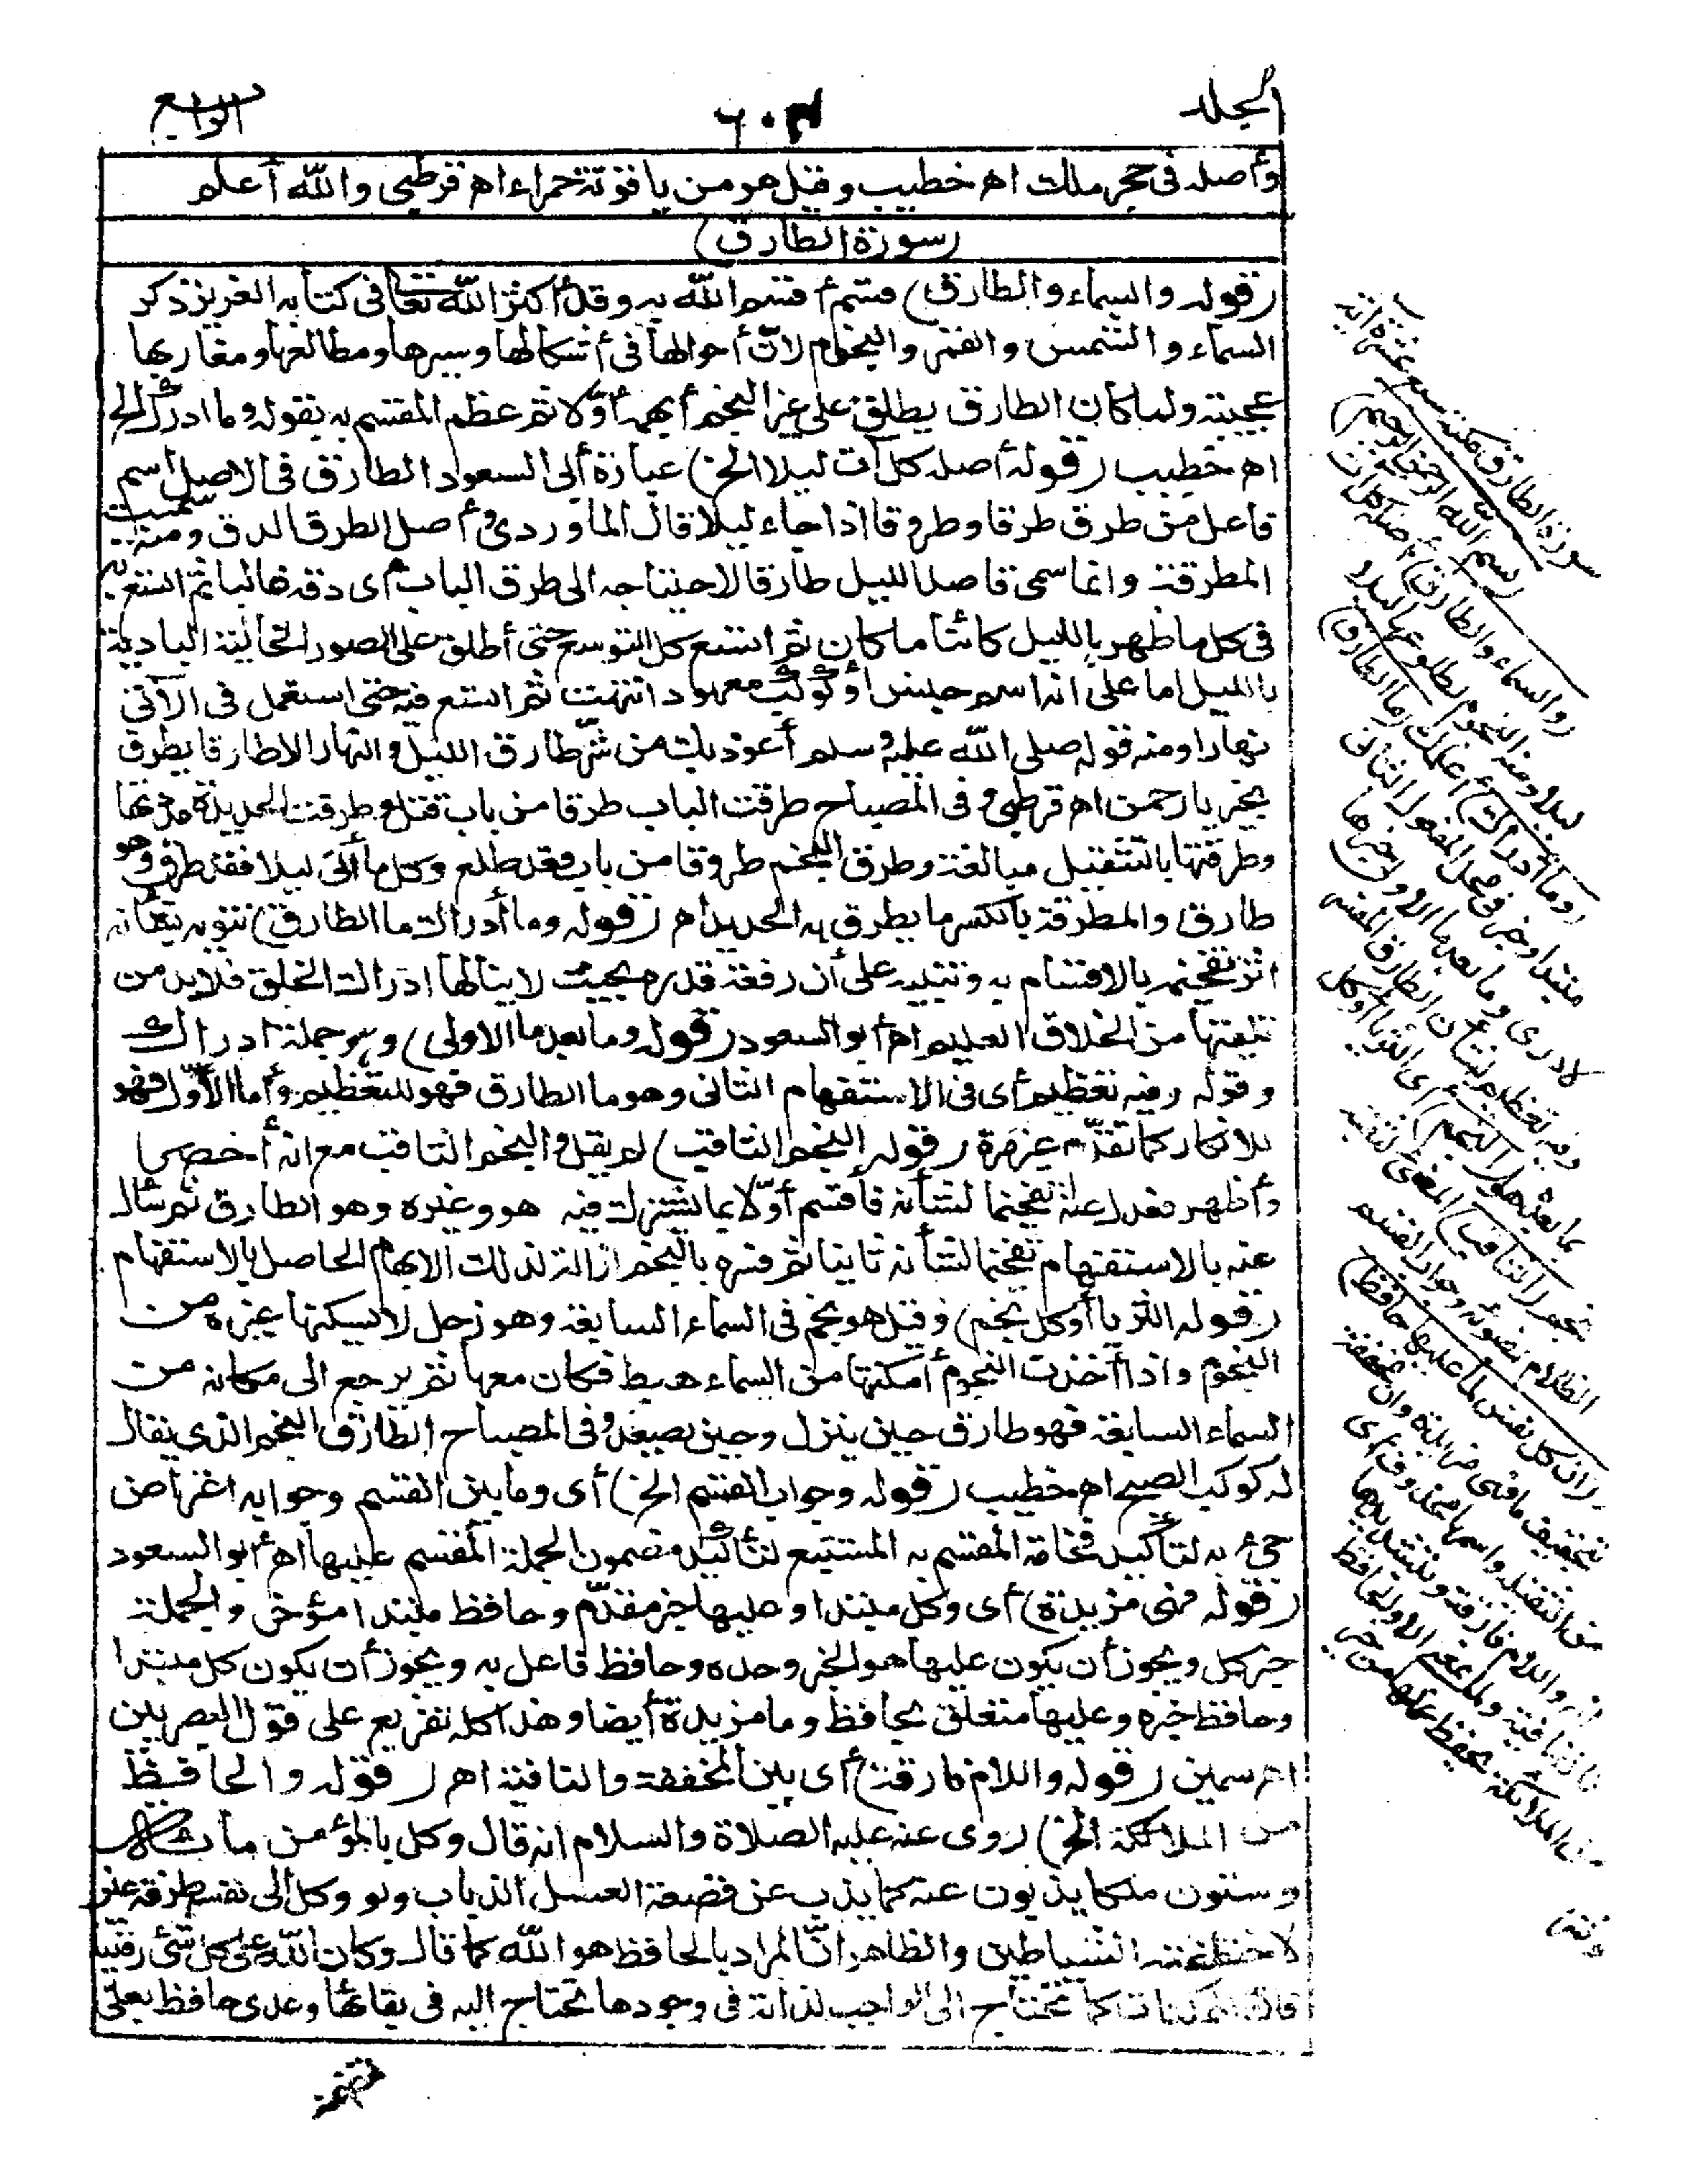 المجلد
٦٠٣
الرابع
وأصله فى حجر ملك اهـ خطيب وقيل هو من ياقوتة حمراء اهـ قرطبى والله أعلم
(سورة الطارق)
(قوله والسماء والطارق) قسم أقسم الله به وقد أكثر الله تعالى فى كتابه العزيز ذكر
السماء والشمس والقمر والنجوم لان أحوالها فى أشكالها وسيرها ومطالعها ومغاربها
عجيبة ولما كان الطارق يطلق على غير النجم أبهمه أولا ثم عظم المقسم به بقوله وما ادراك الخ
اهـ خطيب (قوله أصله كل آت ليلا الخ) عبارة أبى السعود الطارق فى الاصل اسم
فاعل من طرق طرقا وطروقا اذا جاء ليلا قال الماوردى وأصل الطرق الدق ومنه سميت
المطرقة وانما سمى قاصد الليل طارقا لاحتياجه الى طرق الباب أى دقه غالبا ثم اتسع به
فى كل ما ظهر بالليل كائنا ما كان ثم اتسع كل التوسع حتى أطلق على الصور الخيالية البادية
بالليل اما على انه اسم جنس أو كوكب معهود انتهت ثم اتسع فيه حتى استعمل فى الآتى
نهارا ومنه قوله صلى الله عليه وسلم أعوذ بك من شر طارق الليل والنهار الا طارقا يطرق
بخير يا رحمن اهـ قرطبى وفى المصباح طرقت الباب طرقا من باب قتل وطرقت الحديدة مددتها
وطرقتها بالتثقيل مبالغة وطرق النجم طروقا من باب قعد طلع وكل ما أتى ليلا فقد طرق وهو
طارق والمطرقة بالكسر ما يطرق به الحديد اهـ (قوله وما أدراك ما الطارق) تنويه بشأنه
اثر تفخيمه بالاقسام به وتنبيه على أن رفعة قدره بحيث لا ينالها ادراك الخلق فلا بد من
تلقيها من الخلاق العليم اهـ أبو السعود (قوله وما بعد ما الاولى) وهو جملة ادراك
وقوله وفيه تعظيم أى فى الاستفهام الثانى وهو ما الطارق فهو للتعظيم وأما الأول فهو
للانكار كما تقدم غير مرة (قوله النجم الثاقب) لم يقل والنجم الثاقب مع انه أخصر
وأظهر فعدل عنه تفخيما لشأنه فأقسم أولا بما يشترك فيه هو وغيره وهو الطارق ثم سأل
عنه بالاستفهام تفخيما لشأنه ثانيا ثم فسره بالنجم ازالة لذلك الابهام الحاصل بالاستفهام
(قوله الثريا أو كل نجم) وقيل هو نجم فى السماء السابعة وهو زحل لا يسكنها غيره من
النجوم واذا أخذت النجوم أمكنتها من السماء هبط فكان معها ثم يرجع الى مكانه من
السماء السابعة فهو طارق حين ينزل وحين يصعد وفى المصباح الطارق النجم الذى يقال
له كوكب الصبح اهـ خطيب (قوله وجواب القسم الخ) أى وما بين القسم وجوابه اعتراض
جىء به لتأكيد فخامة المقسم به المستتبع لتأكيد مضمون الجملة المقسم عليها اهـ أبو السعود
(قوله فهى مزيدة) أى وكل مبتدا وعليها خبر مقدم وحافظ مبتدا مؤخر والجملة
خبر كل ويجوز أن يكون عليها هو الخبر وحده وحافظ فاعل به ويجوز أن يكون كل مبتدا
وحافظ خبره وعليها متعلق بحافظ وما مزيدة أيضا وهذا كله تفريع على قول البصريين
اهـ سمين (قوله واللام فارقة) أى بين المخففة والنافية اهـ (قوله والحافظ
من الملائكة الخ) روى عنه عليه الصلاة والسلام انه قال وكل بالمؤمن مائة
وستون ملكا يذبون عنه كما يذب عن قصعة العسل الذباب ولو وكل إلى نفسه طرفة عين
لاختطفته الشياطين والظاهر ان المراد بالحافظ هو الله كما قال وكان الله على كل شئ رقيبا
فان الممكنات كما تحتاج الى الواجب لذاته فى وجودها تحتاج اليه فى بقائها وعدى حافظ بعلى
سورة الطارق مكية سبع عشرة آية
(بسم الله الرحمن الرحيم)
(والسماء والطارق) أصله كل آت
ليلا ومنه النجوم لطلوعها ليلا
(وما أدراك) أعلمك (ما الطارق)
مبتدا وخبر فى محل المفعول الثانى
لادرى وما بعد ما الاولى خبرها
وفيه تعظيم لشأن الطارق المفسر
بما بعده هو (النجم) أى الثريا أو كل
نجم (الثاقب) المضئ لثقبه
الظلام بضوئه وجواب القسم
(ان كل نفس لما عليها حافظ)
بتخفيف ما فهى مزيدة وان مخففة
من الثقيلة واسمها محذوف أى
انه واللام فارقة وبتشديدها
فان نافية ولما بمعنى الا والحافظ
من الملائكة يحفظ عملها من خير
وشر